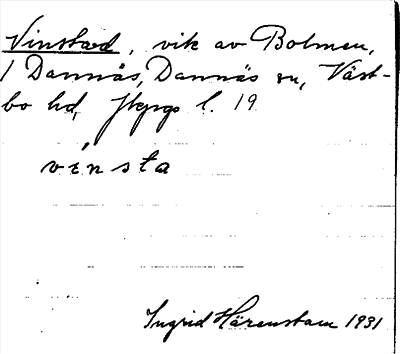 Vinstad, vik av Bolmen,
/ Dannäs, Dannäs sn, Väst-
bo hd, Jkpgs l. 19
vìnsta
Ingrid Härenstam 1931